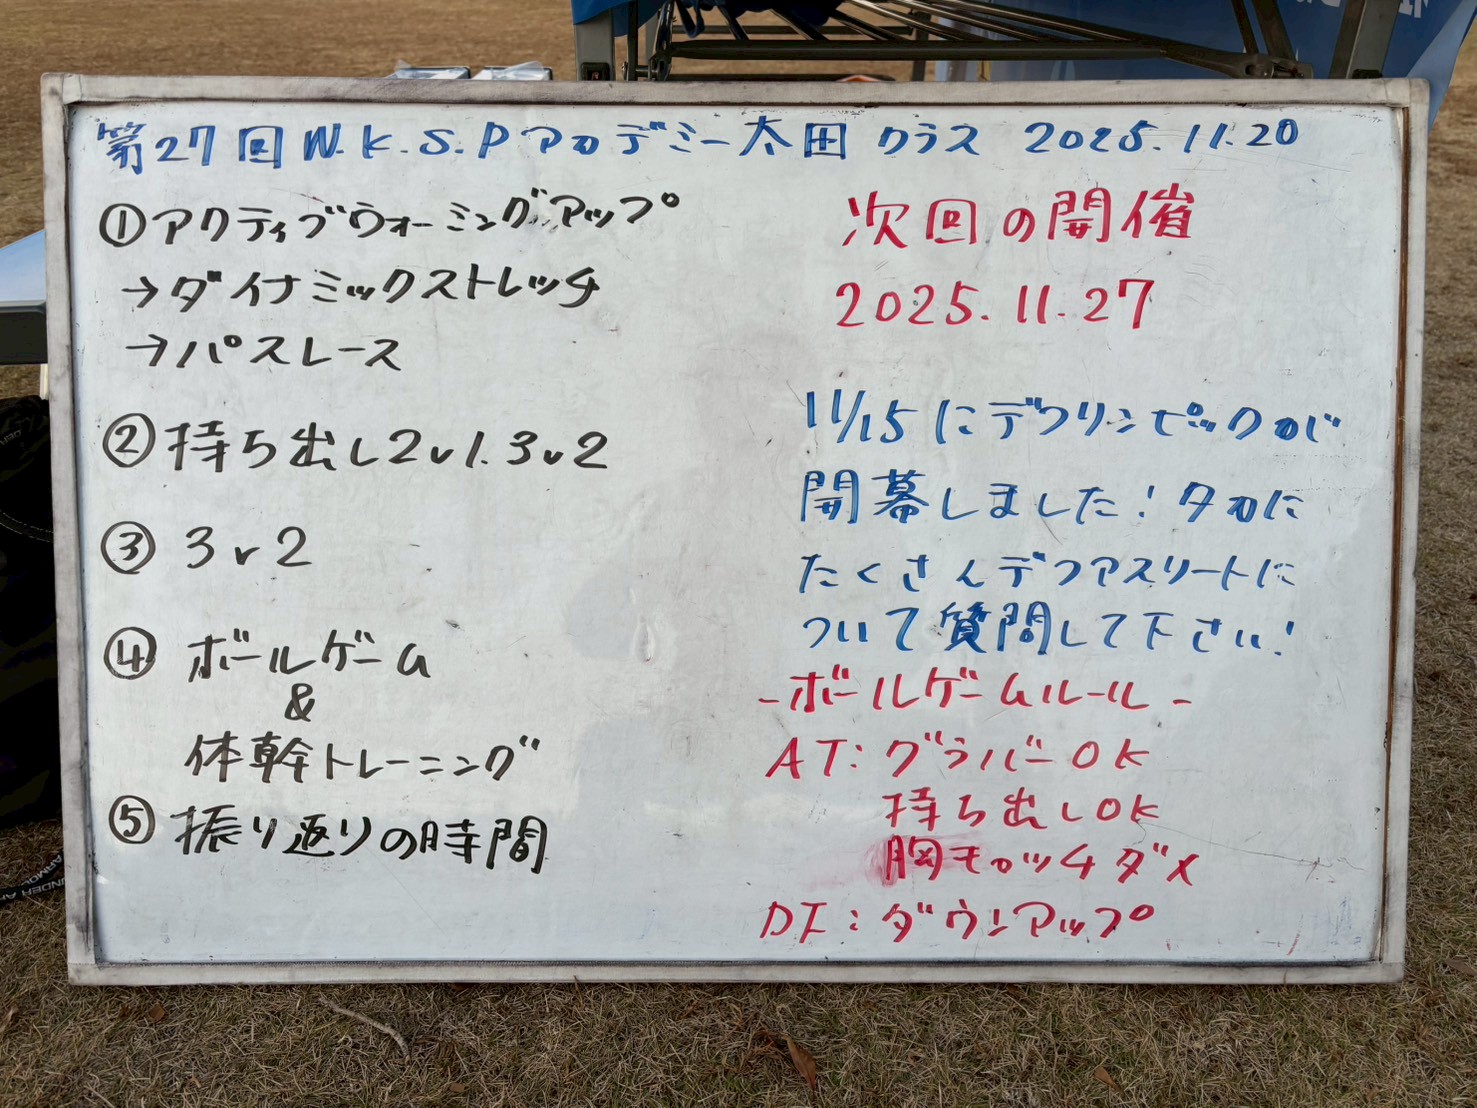 第27回 N.K.S.Pアカデミー太田 クラス 2025.11.20
①アクティブウォーミングアップ
→ダイナミックストレッチ
→パスレース
②持ち出し2v1.3v2
③ 3v2
④ ボールゲーム
&
体幹トレーニング
⑤ 振り返りの時間
次回の開催
2025.11.27
11/15にデフリンピックが
開幕しました!タカに
たくさんデフアスリートに
ついて質問して下さい!
-ボールゲームルール-
AT:グラバーOK
持ち出しOK
胸モロッチダメ
DF:ダウンアップ
UNDER AR
ARMOUR